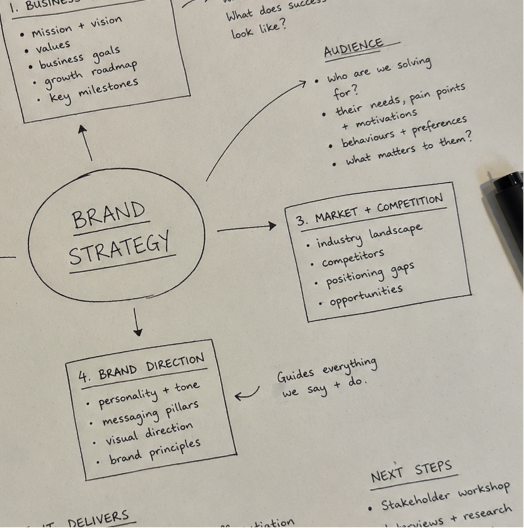 1. BUSINESS
• mission + vision
• values
• business goals
• growth roadmap
• key milestones
What does success
look like?
AUDIENCE
• who are we solving
for?
• their needs, pain points
+ motivations
• behaviours + preferences
• what matters to them?
BRAND
STRATEGY
3. MARKET + COMPETITION
• industry landscape
• competitors
• positioning gaps
• opportunities
4. BRAND DIRECTION
• personality + tone
• messaging pillars
• visual direction
• brand principles
Guides everything
we say + do.
NEXT STEPS
• Stakeholder workshop
+ research
DELIVERS